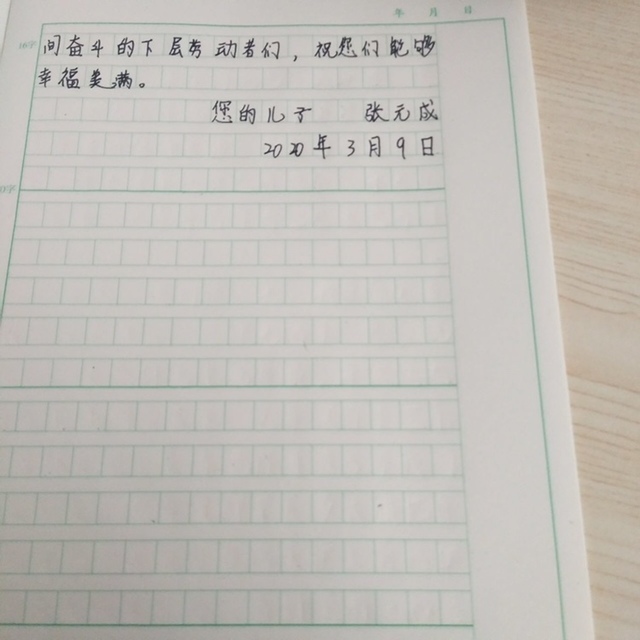 年 月 日
间奋斗的下层劳动者们，祝您们能够
幸福美满。
您的儿子 张元成
2020年3月9日